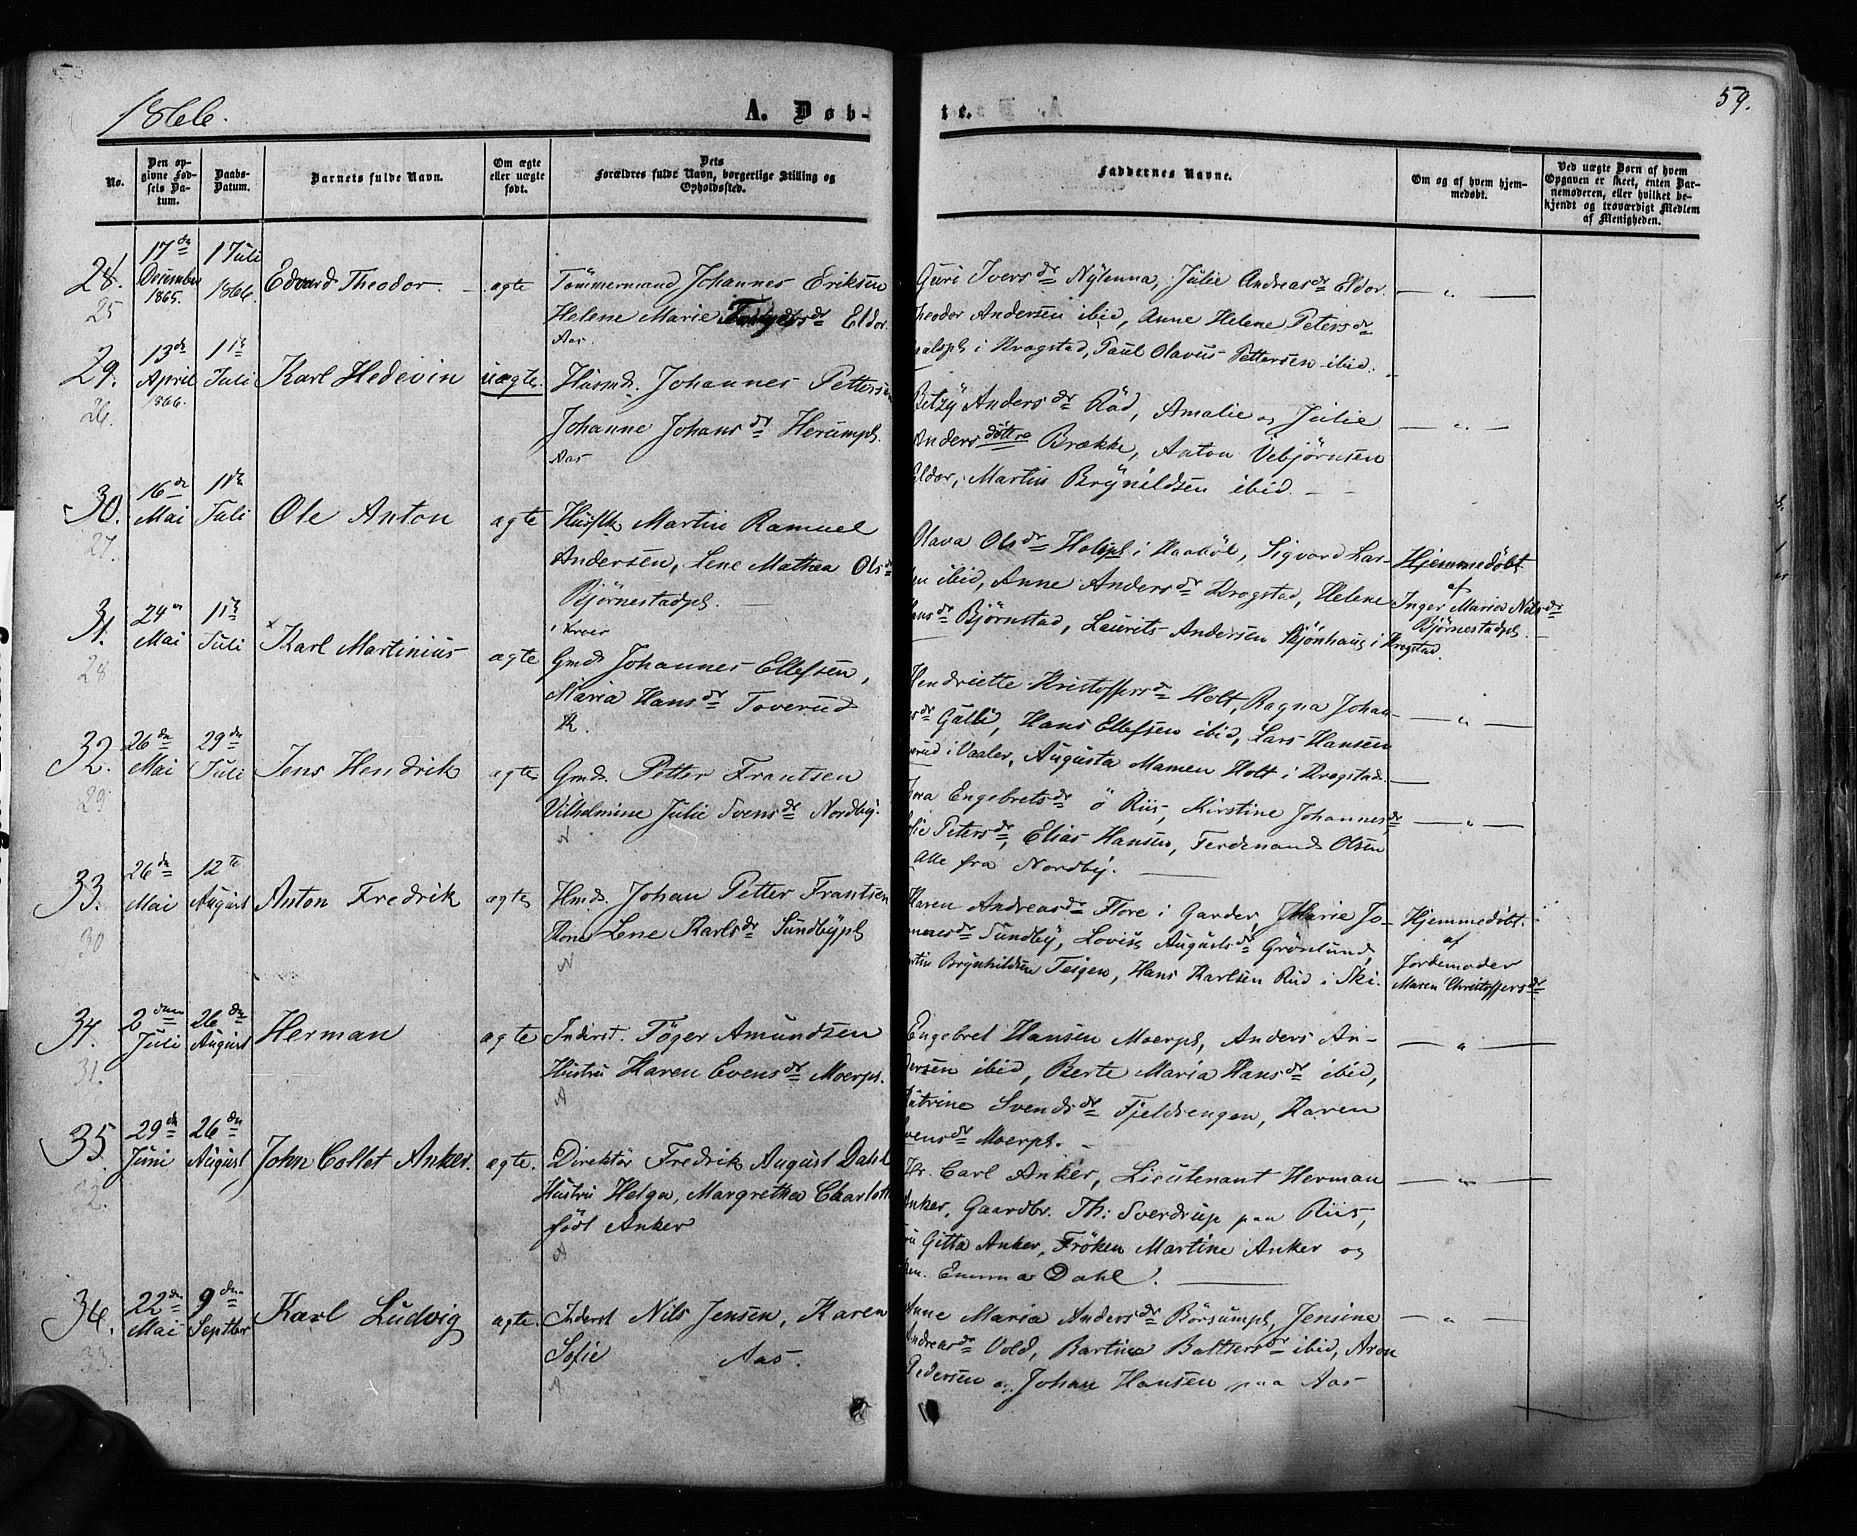 1866.
A. Døb-
te.
59.
No.
Den op-
givne Fød-
sels Da-
tum.
Daabs-
Datum.
Barnets fulde Navn.
Om ægte
eller uægte
født.
Dets
Forældres fulde Navn, borgerlige Stilling og
Opholdssted.
Faddernes Navne.
Om og af hvem hjem-
medøbt.
Ved uægte Børn af hvem
Opgaven er skeet, enten Bar-
nemoderen, eller hvilket be-
kjendt og troværdigt Medlem
af Menigheden.
28.
25
17de
December
1865.
1 Juli
1866.
Edvard Theodor.
ægte
Tømmermand Johannes Eriksen
Helene Marie Eldor.
Aas.
Guri Iversdr Nylenna, Julie Andreasdr Eldor.
Theodor Andersen ibid, Anne Helene Petersdr
i Kragstad, Paul Olavus Pettersen ibid.
— " —
29.
26.
13de
April
1866.
1ste
Juli
Karl Hedevin
uægte.
Husmd. Johannes Pettersen
Johanne Johansdr Herumpl.
Aas
Betzy Andersdr Röd, Amalie og Julie
Andersdöttre Brække, Anton Vebjörnsen
Eldor, Martin Brynildsen ibid. —
— " —
30.
27.
16de
Mai
1ste
Juli
Ole Anton
ægte
Husfk Martin Ramuel
Andersen, Lene Mathea Olsdr
Bjørnestadpl. —
i Kroer
Olava Olsdr Holspl i Haabøl, Sigvard Lar-
sen ibid, Anne Andersdr Kragstad, Helene
Hansdr Bjørnstad, Laurits Andersen Bjönhaug i Kragstad.
Hjemmedøbt
af
Inger Maria Nilsdr
Bjørnestadpl. —
31.
28
24de
Mai
1ste
Juli
Karl Martinius
ægte
Gmd. Johannes Ellefsen,
Maria Hansdr Toverud
K.
Hendriette Kristoffersdr Holt, Ragna Johan-
sdr Gulli, Hans Ellefsen ibid, Lars Hansen
i Vaaler, Augusta Mamen Holt i Kragstad.
— " —
32.
29.
26de
Mai
29de
Juli
Jens Hendrik
ægte
Gmd. Petter Frantsen
Vilhelmine Julie Svensdr Nordby.
N
Thora Engebretsdr ö Riis, Kirstine Johannesdr
Petersdr, Elias Hansen, Ferdenand Olsen
Alle fra Nordby. —
— " —
33.
30
26de
Mai
12te
August
Anton Fredrik
ægte
Hmd. Johan Petter Frantsen
Kone Lene Karlsdr Sundbypl
N
Karen Andreasdr Flore i Garder, Marie Jo-
Sundby, Lovise Augustsdr Grönlund,
Martin Brynhildsen Teigen, Hans Karlsen Rud i Ski.
Hjemmedøbt
af
Jordemoder
Maren Christoffersdr
34.
31.
2den
Juli
26de
August
Herman
ægte
Inderst. Töger Amundsen
Hustru Karen Evensdr Moerpl.
A
Engebret Hansen Moerpl, Anders An-
dersen ibid, Berte Maria Hansdr ibid,
Katrine Svendsdr Fjeldsengen, Karen
Evensdr Moerpl. —
— " —
35.
32.
29de
Juni
26de
August
John Collet Anker.
ægte.
Direktör Fredrik August Dahl
Hustru Helga, Margrethea Charlotte
født Anker
A
Hr. Carl Anker, Lieutenant Herman
Anker, Gaardbr. Th: Sverdrup paa Riis,
Fru Gitta Anker, Fröken Martine Anker og
Emma Dahl. —
— " —
36.
33.
22de
Mai
9den
Septber
Karl Ludvig
ægte.
Inderst Nils Jensen, Karen
Sofie Aas.
A
Anne Maria Andersdr Börsumpl, Jensine
Andreasdr Vold, Bartine Baltsersdr ibid, Aron
Pedersen og Johan Hansen paa Aas
— " —